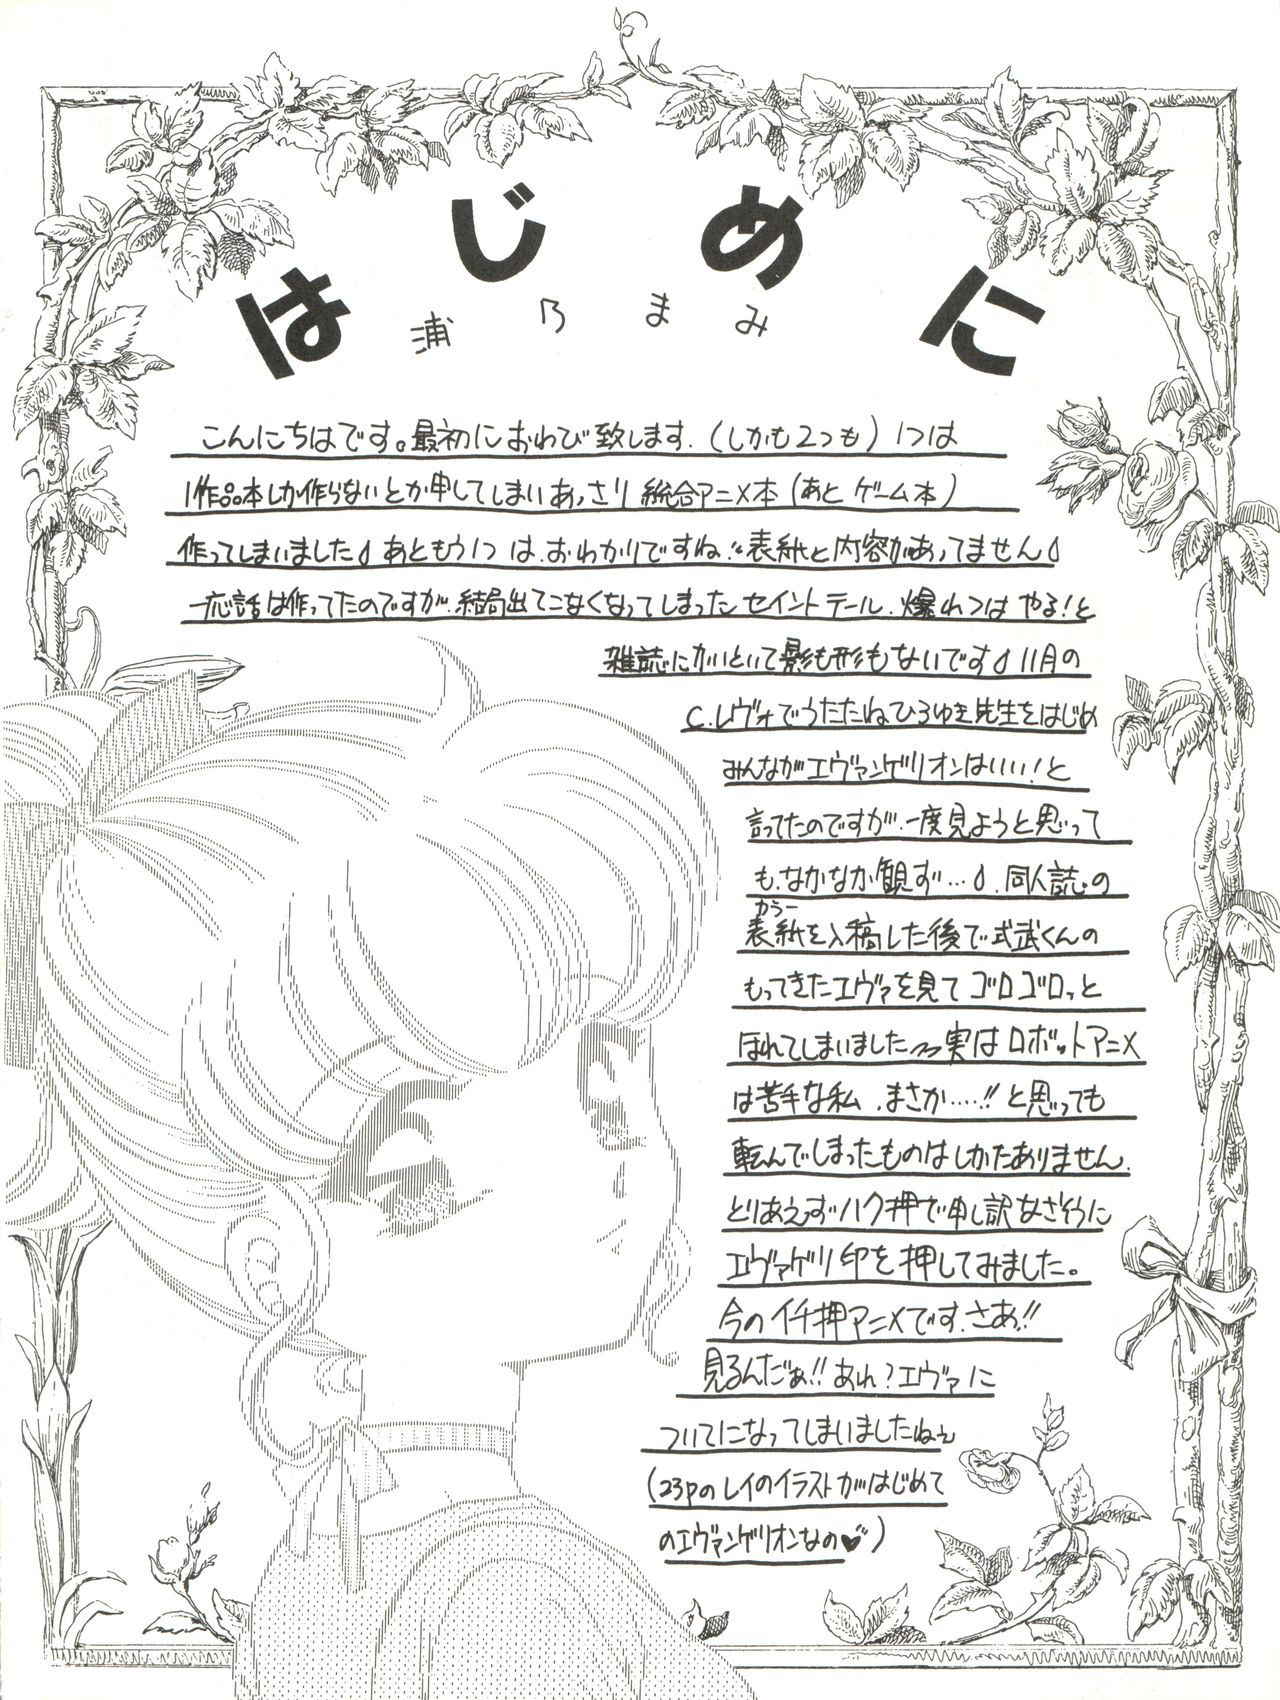 はじめに
浦乃まみ
こんにちはです。最初におわび致します.(しかも2つも)1つは
1作品本しか作らないとか申してしまいあっさり総合アニメ本(あとゲーム本)
作ってしまいました あともう1つは.おわかりですね!!表紙と内容があってません
一応話は作ってたのですが.結局出てこなくなってしまったセイントテール.爆れつはやる!と
雑誌にかいといて影も形もないです 11月の
C.レヴォでうたたねひろゆき先生をはじめ
みんながエヴァンゲリオンはいいい!と
言ってたのですが.一度見ようと思って
も.なかなか観ず…. 同人誌の
カラー
表紙を入稿した後で式武くんの
もってきたエヴァを見てゴロゴロっと
ほれてしまいました〜実はロボットアニメ
は苦手な私.まさか….!!と思っても
転んでしまったものはしかたありません.
とりあえずハク押で申し訳なさそうに
エヴァゲリ印を押してみました。
今のイチ押アニメです.さあ!!
見るんだぁ!!あれ?エヴァに
ついてになってしまいましたねぇ
(23pのレイのイラストがはじめて
のエヴァンゲリオンなの♥)